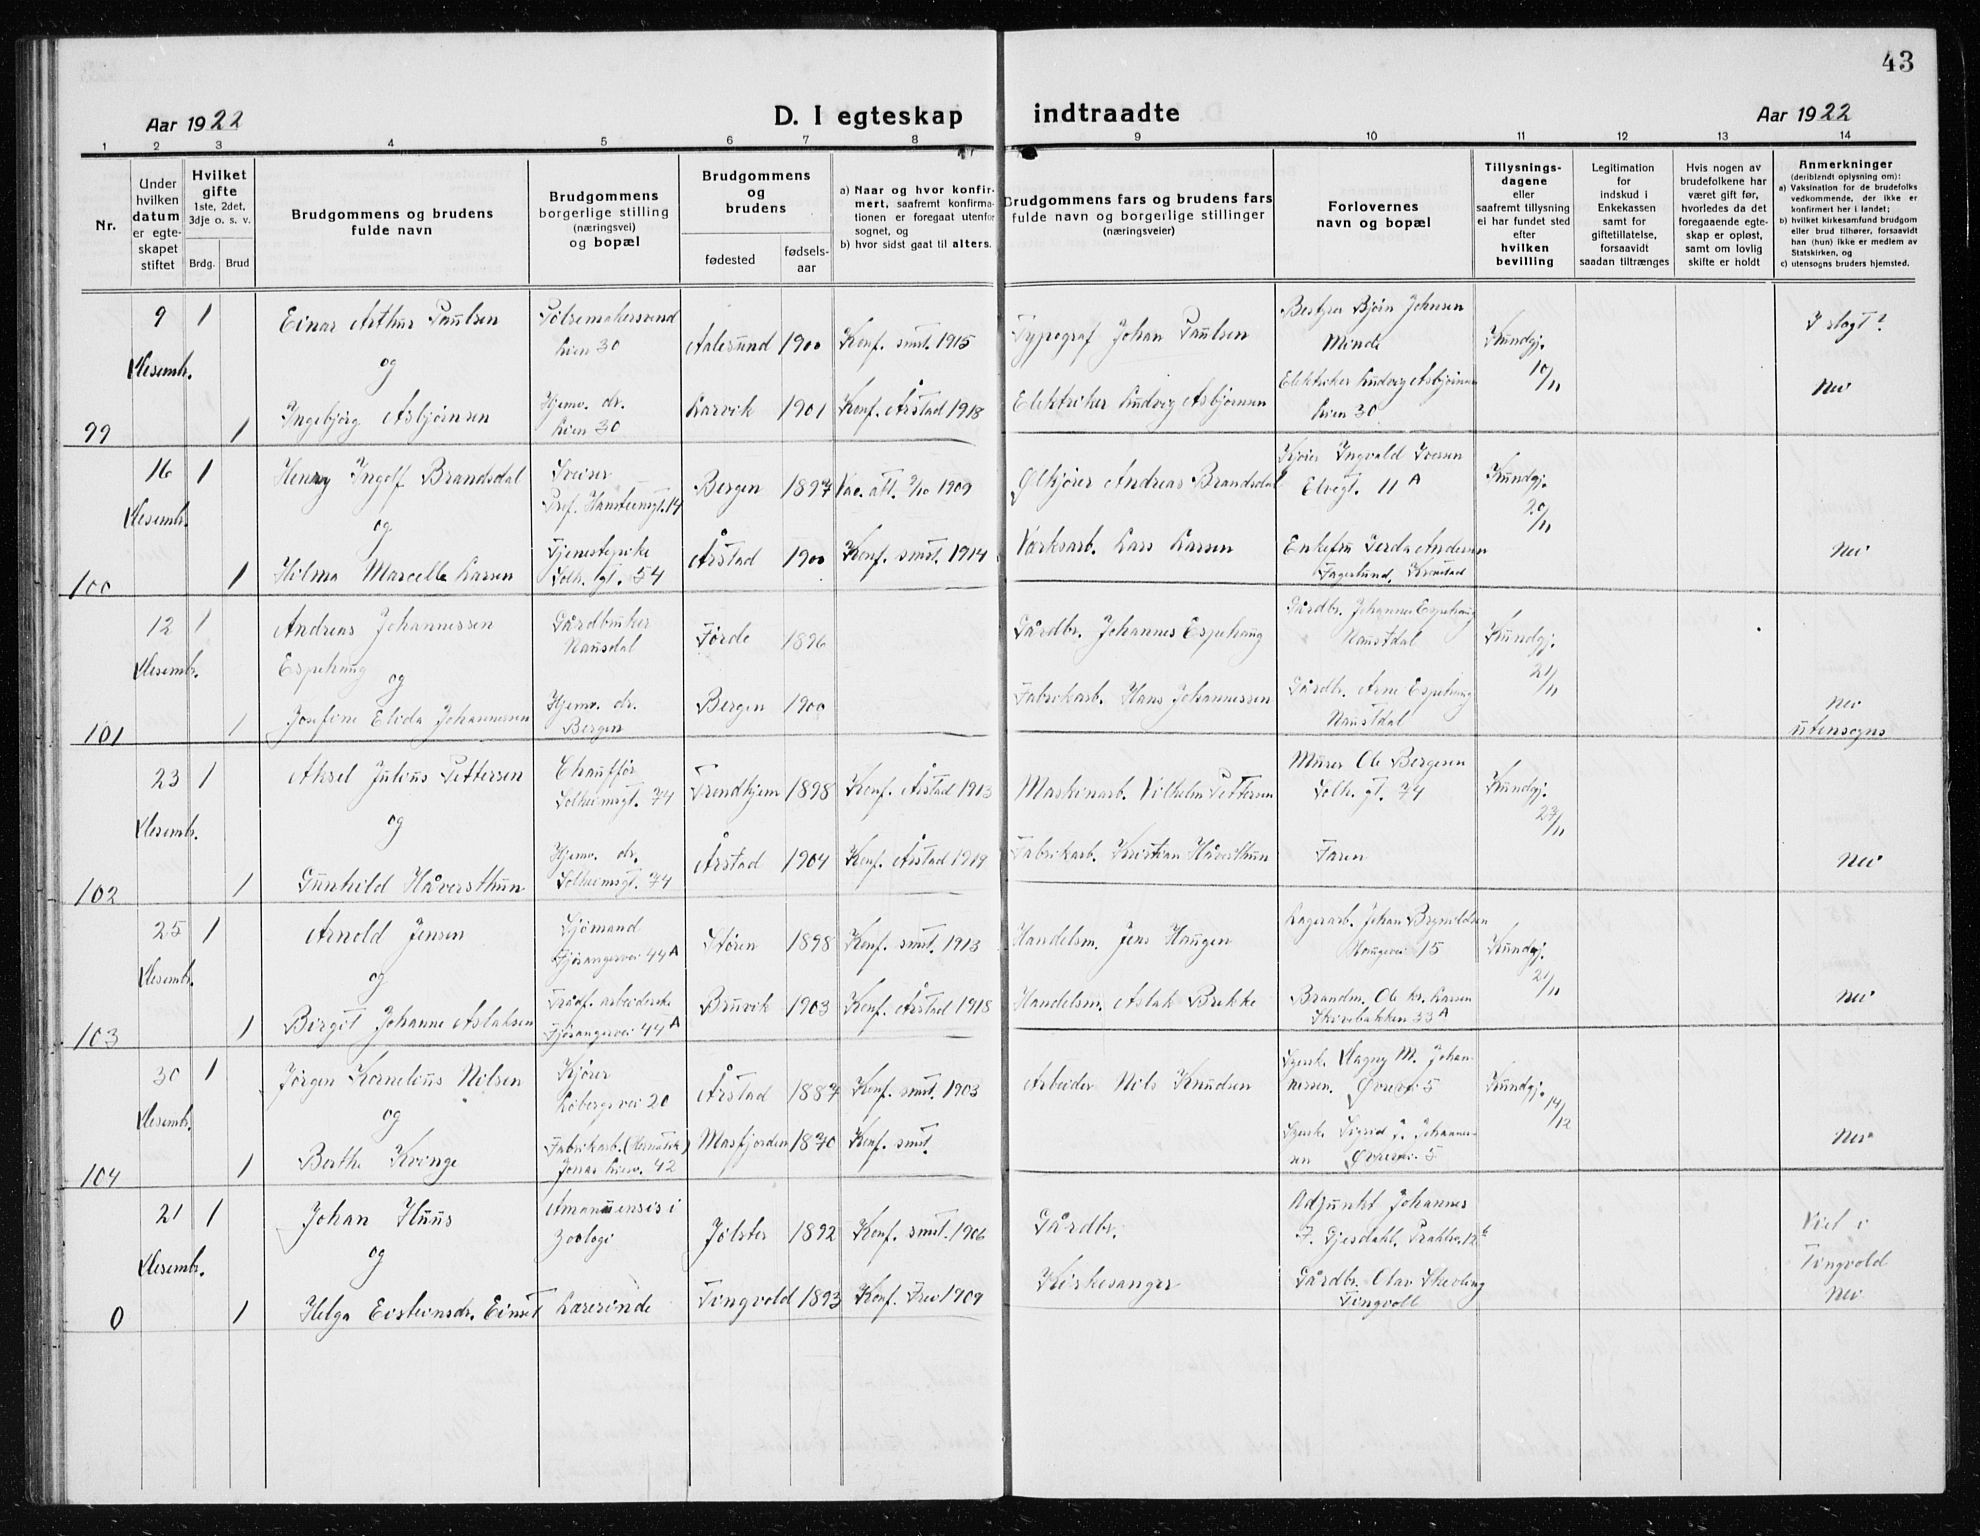 43
Aar 1922
D. I egteskap indtraadte
Aar 1922
1 2 3 4 5 6 7 8 9 10 11 12 13 14
Nr.
Under
hvilken
datum
er egte-
skapet
stiftet
Hvilket
gifte
1ste, 2det,
3dje o. s. v.
Brdg. Brud
Brudgommens og brudens
fulde navn
Brudgommens
borgerlige stilling
(næringsvei)
og bopæl
Brudgommens
og
brudens
fødested
fødsels-
aar
a) Naar og hvor konfir-
mert, saafremt konfirma-
tionen er foregaat utenfor
sognet, og
b) hvor sidst gaat til alters.
Brudgommens fars og brudens fars
fulde navn og borgerlige stillinger
(næringsveier)
Forlovernes
navn og bopæl
Tillysnings-
dagene
eller
saafremt tillysning
ei har fundet sted
efter
hvilken
bevilling
Legitimation
for
indskud i
Enkekassen
samt for
giftetillatelse,
forsaavidt
saadan tiltrænges
Hvis nogen av
brudefolkene har
været gift før,
hvorledes da det
foregaaende egte-
skap er opløst,
samt om lovlig
skifte er holdt
Anmerkninger
(deriblendt oplysning om):
a) Vaksination for de brudefolks
vedkommende, der ikke er
konfirmert her i landet;
b) hvilket kirkesamfund brudgom
eller brud tilhører, forsaavidt
han (hun) ikke er medlem av
Statskirken, og
c) utensogns bruders hjemsted.
9 1 Einar Arthur Paulsen Pølsemakersvend Aalesund 1900 Konf. smst. 1915 Typograf Johan Paulsen Bestyrer Bjørn Johnsen Kundgj. I slegt?
Desembr. og Lien 30 Minde 10/11
99 1 Ingebjørg Asbjørnsen Hjemv. dr. Larvik 1901 Konf. Årstad 1918 Elektriker Ludvig Asbjørnsen Elektriker Ludvig Asbjørnsen Nei
Lien 30 Lien 30
16 1 Henry Ingolf Brandsdal Sveiser Bergen 1897 Vac. att. 9/10 1909 Ølkjører Andreas Brandsdal Kjører Ingvald Iversen Kundgj.
Desembr. og Prof. Hansteensgt. 14 Elvegt. 11 A 20/11
100 1 Hilma Marcelle Larsen Tjenestepike Årstad 1900 Konf. smst. 1914 Værksarb. Lars Larsen Enkefru Gerda Andersen Nei
Solh. gt. 54 Fagerlund, Kronstad
12 1 Andreas Johannessen Gårdbruker Førde 1896 Gårdbr. Johannes Espehaug Gårdbr. Johannes Espehaug Kundgj.
Desembr. Espehaug og Nausdal Naustdal 21/11
101 1 Josefine Elida Johannessen Hjemv. dr. Bergen 1900 Fabrikarb. Hans Johannessen Gårdbr. Arne Espehaug Nei
Bergen Naustdal utensogns
23 1 Aksel Julius Pettersen Chauffør Trondhjem 1898 Konf. Årstad 1913 Maskinarb. Vilhelm Pettersen Murer Ole Bergesen Kundgj.
Desembr. og Solheimsgt. 74 Solh. gt. 74 23/11
102 1 Gunhild Håversthun Hjemv. dr. Årstad 1904 Konf. Årstad 1919 Fabrikarb. Kristian Håversthun Faren Nei
Solheimsgt. 74
25 1 Arnold Jensen Sjömand Støren 1898 Konf. smst. 1913 Handelsm. Jens Haugen Lagerarb. Johan Brynildsen Kundgj.
Desembr. og Fjøsangervei 44 A Haugevei 15 21/11
103 1 Birgit Johanne Aslaksen Trådf. arbeiderske Bruvik 1903 Konf. Årstad 1918 Handelsm. Aslak Brekke Brandm. Ole Kr. Larsen Nei
Fjøsangervei 44 A Skivebakken 33 A
30 1 Jørgen Kornelius Nilsen Kjører Årstad 1887 Konf. smst. 1903 Arbeider Nils Knudsen Dagny M. Johan- Kundgj.
Desembr. og Løbergsvei 20 nessen. Øvrevei 5 14/12
104 1 Berthe Kvinge Fabrikarb. (Hermetik) Masfjorden 1870 Konf. smst. Sigrid J. Johannes- Nei
Jonas Liesv. 42 sen Øvrevei 5
21 1 Johan Huus Amanuensis i Jølster 1892 Konf. smst. 1906 Gårdbr. Adjunkt Johannes Viet i
Desembr. og zoologi F. Gjesdahl, 12 b Tingvold
0 1 Helga Eisteinsdr. Einset Lærerinde Tingvold 1893 Konf. Frei 1909 Kirkesanger Gårdbr. Olav Nei
Tingvoll